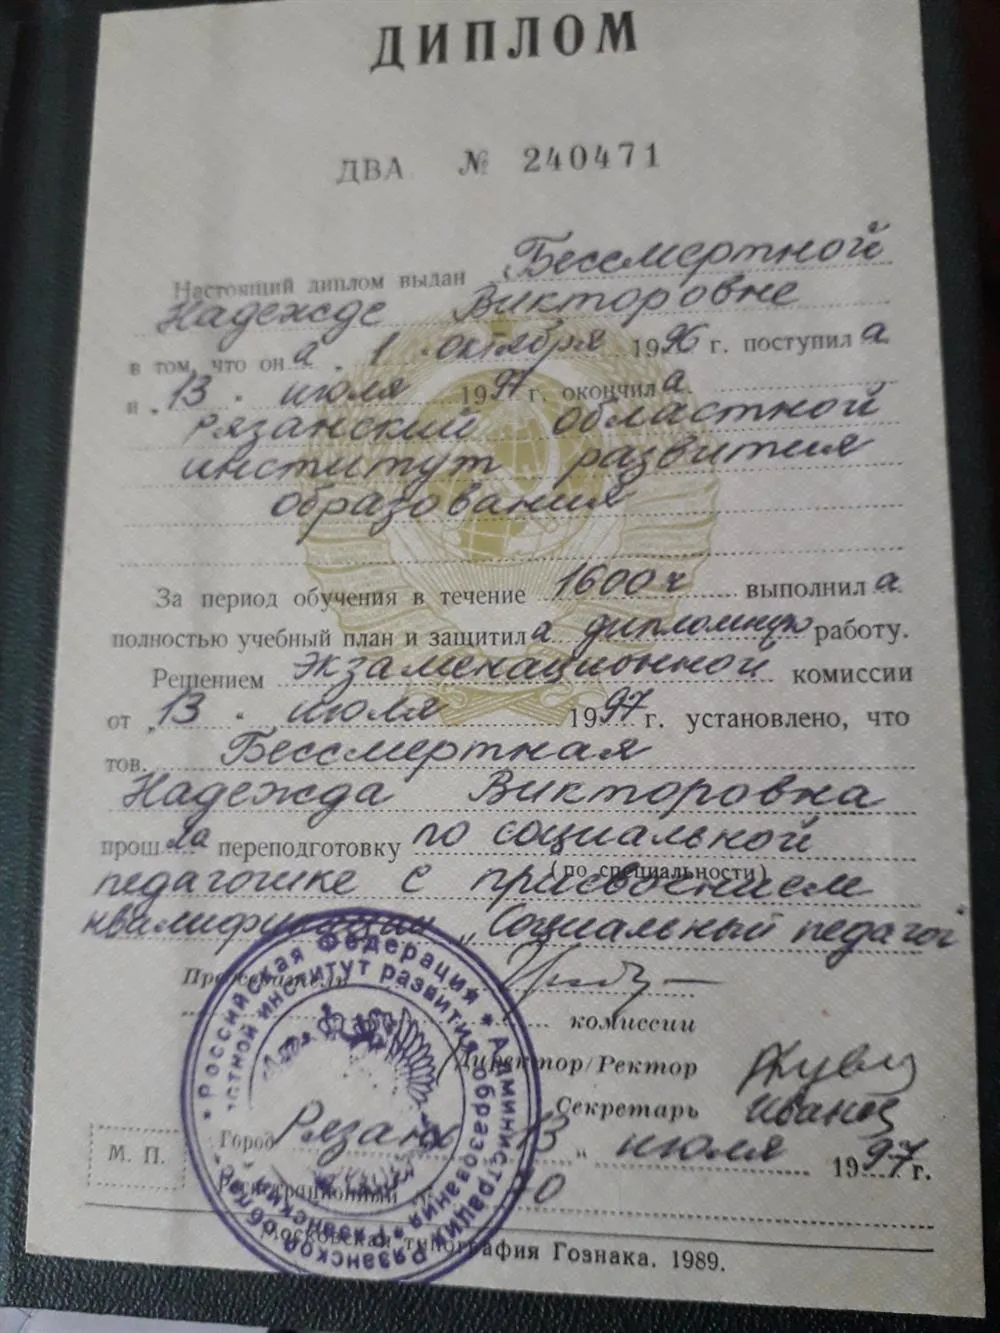 ДИПЛОМ
ДВА № 240471
Настоящий диплом выдан Бессмертной
Надежде Викторовне
в том, что она „1" октября 1996 г. поступила
и „13" июля 1997 г. окончила
Рязанский областной
институт развития
образования
За период обучения в течение 1600 ч выполнила
полностью учебный план и защитила дипломную работу.
Решением Экзаменационной комиссии
от „13" июля 1997 г. установлено, что
тов. Бессмертная
Надежда Викторовна
прошла переподготовку по социальной
(по специальности)
педагогике с присвоением
квалификации „Социальный педагог
Председатель
комиссии
Директор/Ректор
Секретарь
Город Рязань 13 „ июля 1997 г.
М. П.
Регистрационный №
Московская типография Гознака. 1989.
Российская Федерация * Администрация Рязанской области
институт развития образования